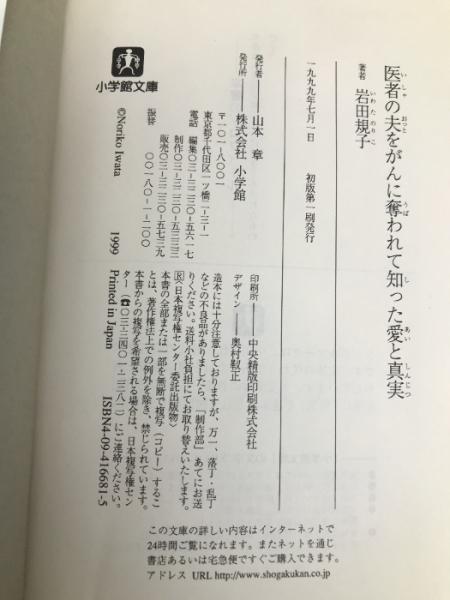 医者の夫をがんに奪われて知った愛と真実
いしゃ おっと うば し あい しんじつ
著者 岩田規子
いわたのりこ
一九九九年七月一日 初版第一刷発行
発行者――山本 章
発行所――株式会社 小学館
〒一〇一-八〇〇一
東京都千代田区一ツ橋二-三-一
電話 編集〇三-三二三〇-五六一七
制作〇三-三二三〇-五三三三
販売〇三-三二三〇-五七三九
振替 〇〇一八〇-一-二〇〇
©Noriko Iwata 1999
小学館文庫
印刷所――中央精版印刷株式会社
デザイン――奥村靫正
造本には十分注意しておりますが、万一、落丁・乱丁
などの不良品がありましたら、「制作部」あてにお送
りください。送料小社負担にてお取り替えいたします。
Ⓡ〈日本複写権センター委託出版物〉
本書の全部または一部を無断で複写（コピー）するこ
とは、著作権法上での例外を除き、禁じられています。
本書からの複写を希望される場合は、日本複写権セン
ター（☎〇三-三四〇一-二三八二）にご連絡ください。
Printed in Japan
ISBN4-09-416681-5
この文庫の詳しい内容はインターネットで
24時間ご覧になれます。またネットを通じ
書店あるいは宅急便ですぐご購入できます。
アドレス URL http://www.shogakukan.co.jp